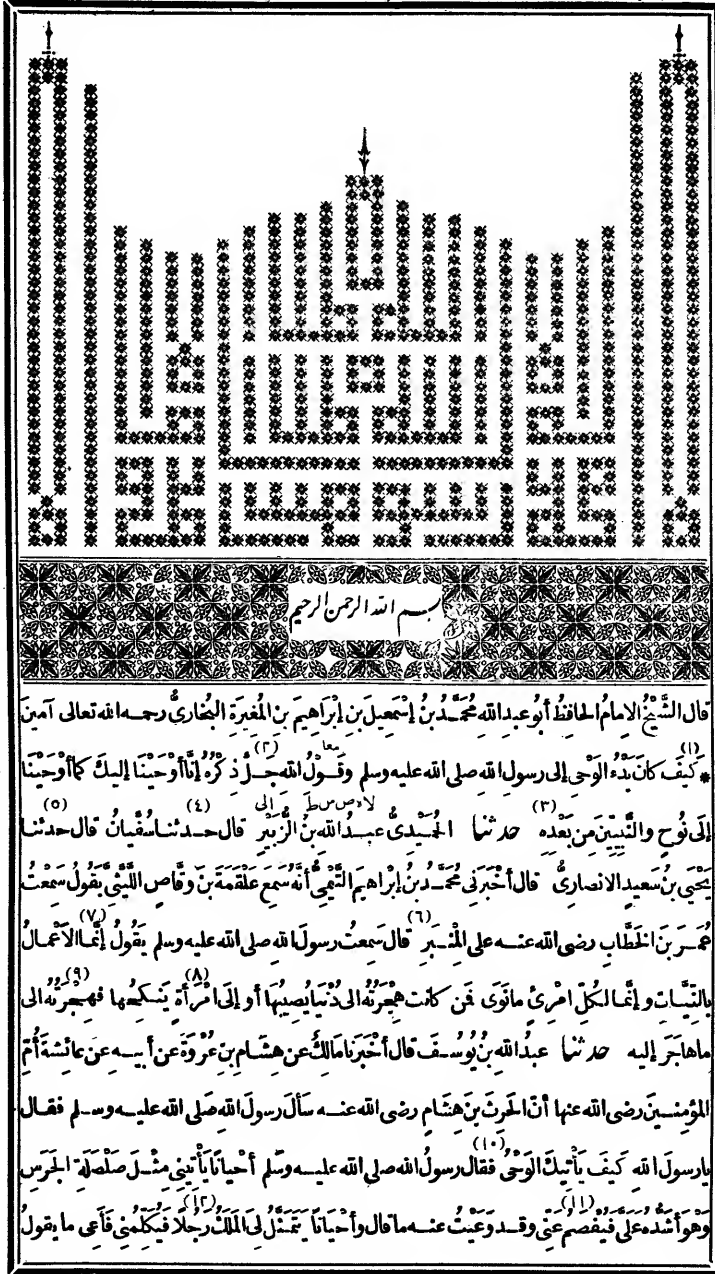 بسم الله الرحمن الرحيم
قال الشَّيْخُ الإمامُ الحافظُ أبو عبدِ اللهِ مُحَمَّدُ بْنُ إسْمٰعِيلَ بنِ إبْرَاهِيمَ بنِ المُغِيرَةِ البُخارىُّ رحمه الله تعالى آمينَ
* (١) كَيْفَ كانَ بَدْءُ الوَحْىِ إلى رسولِ اللهِ صلى الله عليه وسلم وقَوْلُ معا (٢) اللهِ جَلَّ ذِكْرُهُ إنَّا أوْحَيْنَا إليكَ كما أوْحَيْنَا
إلَى نُوحٍ والنَّبِيِّينَ مِنْ بَعْدِهِ (٣) حدثنا الحُمَيْدِىُّ لا ه ص س ط عبدُ اللهِ بنُ الزُّبَيْرِ إلى قال حدثنا (٤) سُفْيانُ قال حدثنا (٥)
يَحْيَى بنُ سَعِيدٍ الأنصارىُّ قال أخْبَرَنِى مُحَمَّدُ بنُ إبْرَاهِيمَ التَّيْمِىُّ أنَّهُ سَمِعَ عَلْقَمَةَ بنَ وَقَّاصٍ اللَّيْثِىَّ يَقُولُ سَمِعْتُ
عُمَرَ بْنَ الخَطَّابِ رضى الله عنه على المِنْبَرِ (٦) قال سَمِعْتُ رسولَ اللهِ صلى الله عليه وسلم يَقُولُ (٧) إنَّمَا الأَعْمالُ
بالنِّيَّاتِ وإنَّمَا لِكُلِّ امْرِئٍ مانَوَى فَمَنْ كانت هِجْرَتُهُ الى دُنْيَا يُصِيبُهَا (٨) أو إلَى امْرَأَةٍ يَنْكِحُها فهِجْرَتُهُ (٩) الى
ماهَاجَرَ إليه حدثنا عبدُ اللهِ بنُ يُوسُفَ قال أخْبَرَنا مَالِكٌ عن هِشَامِ بنِ عُرْوَةَ عن أبيهِ عن عائشةَ أُمِّ
المُؤمِنِينَ رضى الله عنها أنَّ الحَرِثَ بنَ هِشَامٍ رضى الله عنه سَألَ رسولَ اللهِ صلى الله عليه وسلم فقال
يارسولَ اللهِ كَيْفَ يَأْتِيكَ الوَحْىُ (١٠) فقال رسولُ اللهِ صلى الله عليه وسلم أحْيانًا يَأْتِينِى مِثْلَ صَلْصَلَةِ الجَرَسِ
وَهْوَ أشَدُّهُ عَلَىَّ فَيُفْصَمُ (١١) عَنِّى وقد وَعَيْتُ عنه ماقال وأحْيانًا يَتَمَثَّلُ (١٢) لِىَ المَلَكُ رَجُلًا فَيُكَلِّمُنِى فَأَعِى ما يقولُ